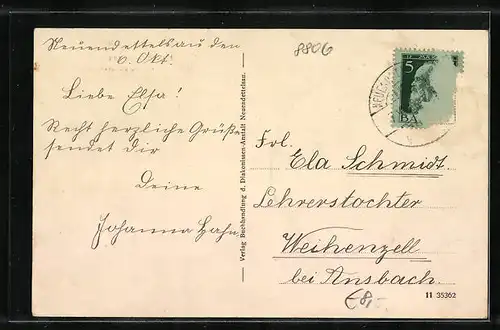 Neuendettelsau den
6. Okt.
Liebe Elsa!
Recht herzliche Grüße
sendet dir
Deine
Johanna Hahn
Verlag Buchhandlung d. Diakonissen-Anstalt Neuendettelsau.
8806
5
BA
Frl.
Ela Schmidt
Lehrerstochter
Weihenzell
bei Ansbach.
€8,-
11 35362